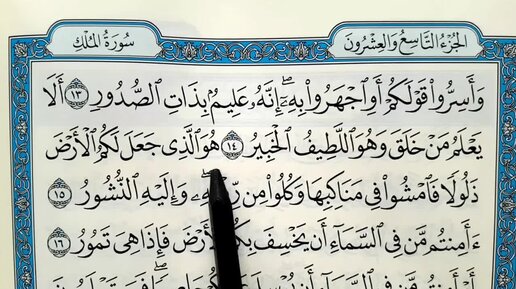 سُورَةُ المُلْكِ
الجُزْءُ التَّاسِعُ وَالعِشْرُونَ
وَأَسِرُّوا۟ قَوْلَكُمْ أَوِ ٱجْهَرُوا۟ بِهِۦٓ ۖ إِنَّهُۥ عَلِيمٌۢ بِذَاتِ ٱلصُّدُورِ ١٣ أَلَا
يَعْلَمُ مَنْ خَلَقَ وَهُوَ ٱللَّطِيفُ ٱلْخَبِيرُ ١٤ هُوَ ٱلَّذِى جَعَلَ لَكُمُ ٱلْأَرْضَ
ذَلُولًا فَٱمْشُوا۟ فِى مَنَاكِبِهَا وَكُلُوا۟ مِن وَإِلَيْهِ ٱلنُّشُورُ ١٥
ءَأَمِنتُم مَّن فِى ٱلسَّمَآءِ أَن يَخْسِفَ ٱلْأَرْضَ فَإِذَا هِىَ تَمُورُ ١٦